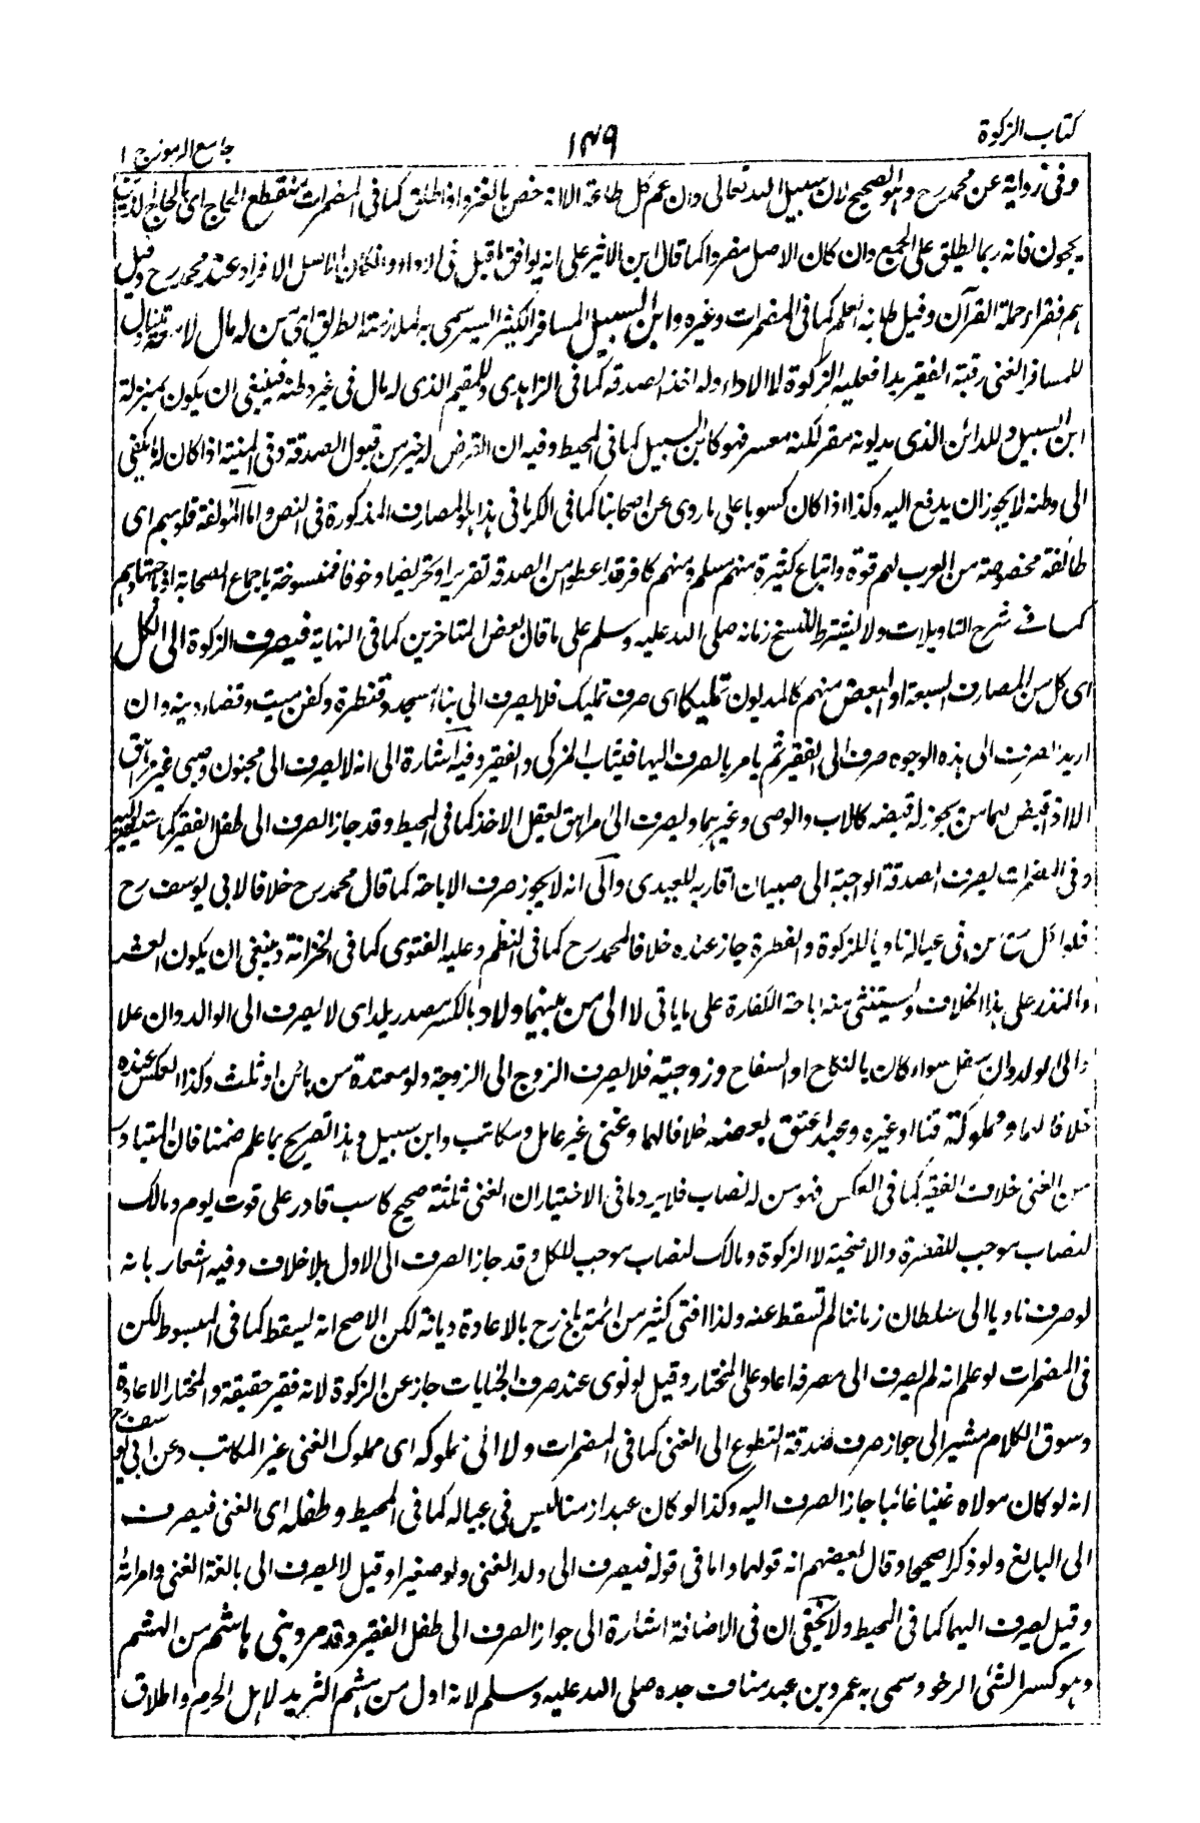 كتاب الزكوة
١٤٩
جامع الرموز ج ١
وفى رواية عن محمد رح وهو الصحيح لان سبيل الله تعالى وان عم كل طاعة الا انه خص بالغزو اذا اطلق كما فى المضمرات منقطع الحاج اى الحاج الذين
يحجون فانه ربما يطلق على الجمع وان كان الاصل مفردا كما قال ابن الاثير على انه يوافق ما قيل فى الافراد عند محمد رح وقيل
هم فقراء حملة القرآن وقيل طلبة العلم كما فى المضمرات وغيره وابن السبيل المسافر الكثير السير سمى به لملازمته الطريق اى من له مال لا معه
للمسافر الغنى رقبة الفقير يدا فعليه الزكوة لا الاداء وله اخذ الصدقة كما فى الزاهدى وللمقيم الذى له مال فى غير وطنه فينبغى ان يكون بمنزلة
ابن السبيل وللدائن الذى مديونه مقر لكنه معسر فهو كابن السبيل كما فى المحيط وفيه ان القرض له خير من قبول الصدقة وفى المنية اذا كان له ما يكفى
الى وطنه لا يجوز ان يدفع اليه وكذا اذا كان كسوبا على ما روى عن اصحابنا كما فى الكرمانى هذا هو المصارف المذكورة فى النص واما المؤلفة قلوبهم اى
طائفة مخصوصة من العرب لهم قوة واتباع كثيرة منهم مسلم ومنهم كافر قد اعطوا من الصدقة تقريرا وتحريضا وخوفا فمنسوخة باجماع الصحابة او باجتهادهم
كما فى شرح التاويلات ولا يشترط للنسخ زمانه صلى الله عليه وسلم على ما قال بعض المتاخرين كما فى النهاية فيصرف الزكوة الى الكل
اى كل من المصارف السبعة او البعض منهم كالمديون تمليكا اى صرف تمليك فلا يصرف الى بناء مسجد وقنطرة وكفن ميت وقضاء دينه وان
اريد الصرف الى هذه الوجوه صرف الى الفقير ثم يامر بالصرف اليها فيثاب المزكى والفقير وفيه اشارة الى انه لا يصرف الى مجنون وصبى غير مراهق
الا اذا قبض لهما من يجوز له قبضه كالاب والوصى وغيرهما ويصرف الى مراهق يعقل الاخذ كما فى المحيط وقد جاز الصرف الى طفل الفقير كما
وفى المضمرات يصرف الصدقة الواجبة الى صبيان اقاربه للعيدى والى انه لا يجوز صرف الاباحة كما قال محمد رح خلافا لابى يوسف رح
فلو اكل من فى عياله ناويا للزكوة والفطرة جاز عنده خلافا لمحمد رح كما فى النظم وعليه الفتوى كما فى الخزانة وينبغى ان يكون العشر
والنذر على هذا الخلاف ويستثنى منه اباحة الكفارة على ما ياتى لا الى من بينهما ولاد بالكسر مصدر يلد اى لا يصرف الى الوالد وان علا
والى الولد وان سفل سواء كان بالنكاح او السفاح وزوجية فلا يصرف الزوج الى الزوجة ولو معتدة من بائن او ثلث وكذا العكس عنده
خلافا لهما ومملوكه قنا او غيره وعبد اعتق بعضه خلافا لهما وغنى غير عامل ومكاتب وابن سبيل وهذا تصريح بما علم ضمنا فان المتبادر
من الغنى خلاف الفقير كما فى العكس فهو من له نصاب فلا يرد ما فى الاختيار ان الغنى ثلثة صحيح كاسب قادر على قوت يوم ومالك
لنصاب موجب للفطرة والاضحية لا الزكوة ومالك لنصاب موجب للكل وقد جاز الصرف الى الاول بلا خلاف وفيه اشعار بانه
لو صرف ناويا الى سلطان زماننا لم تسقط عنه ولذا افتى كثير من ائمة بلخ رح بالاعادة ديانة لكن الاصح انه يسقط كما فى المبسوط لكن
فى المضمرات لو علم انه لم يصرف الى مصرفه اعاد على المختار وقيل لو نوى عند صرف الجنايات جاز عن الزكوة لانه فقير حقيقة والمختار الاعادة
وسوق الكلام مشير الى جواز صرف صدقة التطوع الى الغنى كما فى المضمرات ولا الى مملوكه اى مملوك الغنى غير المكاتب وعن ابى يوسف رح
انه لو كان مولاه غنيا غائبا جاز الصرف اليه وكذا لو كان عبدا زمنا ليس فى عياله كما فى المحيط وطفله اى الغنى فيصرف
الى البالغ ولو ذكرا صحيحا وقال بعضهم انه قولهما واما فى قوله فيصرف الى ولد الغنى ولو صغيرا وقيل لا يصرف الى بالغة الغنى وامراته
وقيل يصرف اليهما كما فى المحيط ولا يخفى ان فى الاضافة اشارة الى جواز الصرف الى طفل الفقير وقد مر وبنى هاشم من الهشم
وهو كسر الشئ الرخو وسمى به عمرو بن عبد مناف جده صلى الله عليه وسلم لانه اول من هشم الثريد لاهل الحرم واطلاق